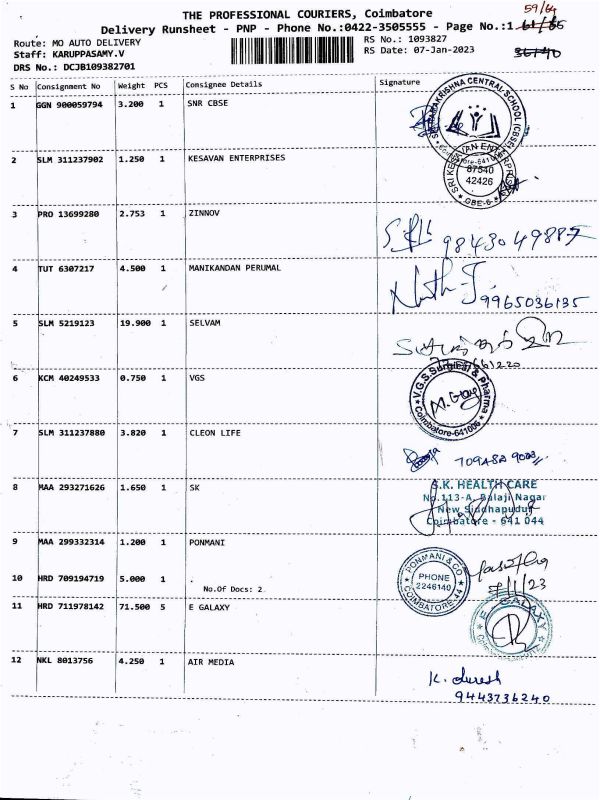 THE PROFESSIONAL COURIERS, Coimbatore
59/64
Delivery Runsheet - PNP - Phone No.:0422-3505555 - Page No.:1
Route: MO AUTO DELIVERY
RS No.: 1093827
Staff: KARUPPASAMY.V
RS Date: 07-Jan-2023
DRS No.: DCJB109382701
S No Consignment No Weight PCS Consignee Details Signature
1 GGN 900059794 3.200 1 SNR CBSE
2 SLM 311237902 1.250 1 KESAVAN ENTERPRISES
87540
42426
CBE-6
3 PRO 13699280 2.753 1 ZINNOV
9843049887
4 TUT 6307217 4.500 1 MANIKANDAN PERUMAL
9965036135
5 SLM 5219123 19.900 1 SELVAM
6 KCM 40249533 0.750 1 VGS
V.G.S. Surgical & Pharma
Coimbatore-641006
7 SLM 311237880 3.820 1 CLEON LIFE
8 MAA 293271626 1.650 1 SK
S.K. HEALTH CARE
No.113-A, Balaji Nagar
New Siddhapudur
Coimbatore - 641 044
9 MAA 299332314 1.200 1 PONMANI
PONMANI & CO
PHONE
2246140
COIMBATORE-44
7/1/23
10 HRD 709194719 5.000 1
No.Of Docs: 2
11 HRD 711978142 71.500 5 E GALAXY
E GALAXY
12 NKL 8013756 4.250 1 AIR MEDIA
K. Suresh
9443736240